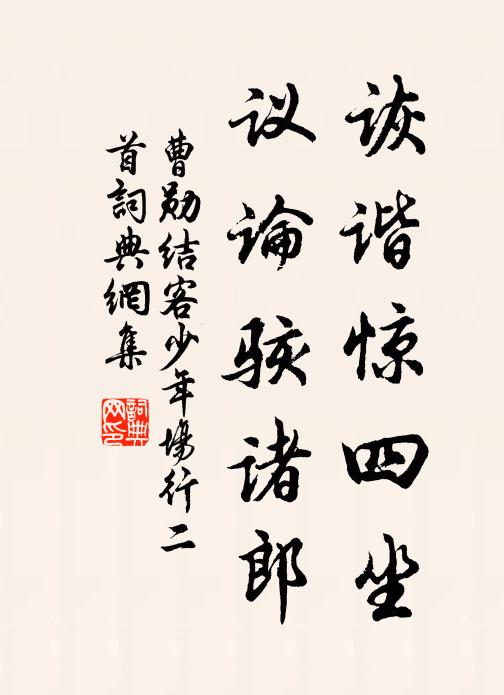 诙谐惊四坐
议论骇诸郎
曹勋结客少年场行二
首词典網集
詞典网印